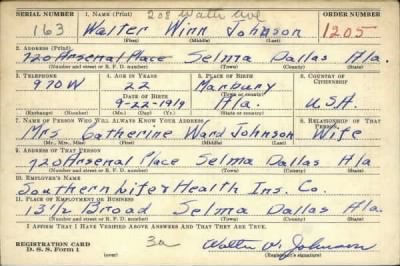 SERIAL NUMBER 1. NAME (Print) 208 Water Ave ORDER NUMBER
163 Walter Winn Johnson 1205
(First) (Middle) (Last)
2. ADDRESS (Print)
720 Arsenal Place Selma Dallas Ala.
(Number and street or R. F. D. number) (Town) (County) (State)
3. TELEPHONE 4. AGE IN YEARS 5. PLACE OF BIRTH 6. COUNTRY OF CITIZENSHIP
970W 22 Marbury
DATE OF BIRTH (Town or county)
9-22-1919 Ala. U.S.A.
(Exchange) (Number) (Mo.) (Day) (Yr.) (State or country)
7. NAME OF PERSON WHO WILL ALWAYS KNOW YOUR ADDRESS 8. RELATIONSHIP OF THAT PERSON
Mrs. Catherine Ward Johnson Wife
(Mr., Mrs., Miss) (First) (Middle) (Last)
9. ADDRESS OF THAT PERSON
720 Arsenal Place Selma Dallas Ala
(Number and street or R. F. D. number) (Town) (County) (State)
10. EMPLOYER'S NAME
Southern Life & Health Ins. Co.
11. PLACE OF EMPLOYMENT OR BUSINESS
13 1/2 Broad Selma Dallas Ala.
(Number and street or R. F. D. number) (Town) (County) (State)
I AFFIRM THAT I HAVE VERIFIED ABOVE ANSWERS AND THAT THEY ARE TRUE.
REGISTRATION CARD 3a Walter W. Johnson
D. S. S. Form 1 (over) (Registrant's signature)